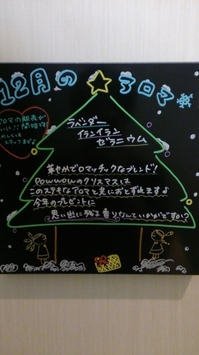 12月の アロマ
アロマの販売が
ラベンダー
イランイラン
ゼラニウム
華やかでロマンチックなブレンド!
powwowのクリスマスは
このステキなアロマと共におとずれますよ♪
今年のプレゼントに
思い出に残る香りなんていかがですか?